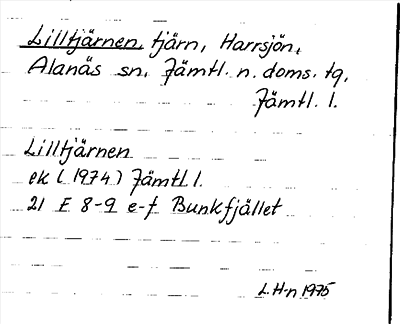 Lilltjärnen, tjärn, Harrsjön,
Alanäs sn, Jämtl. n. doms. tg,
Jämtl. l.
Lilltjärnen
ek (1974) Jämtl l.
21 F 8-9 e-f Bunkfjället
L. H-n 1975